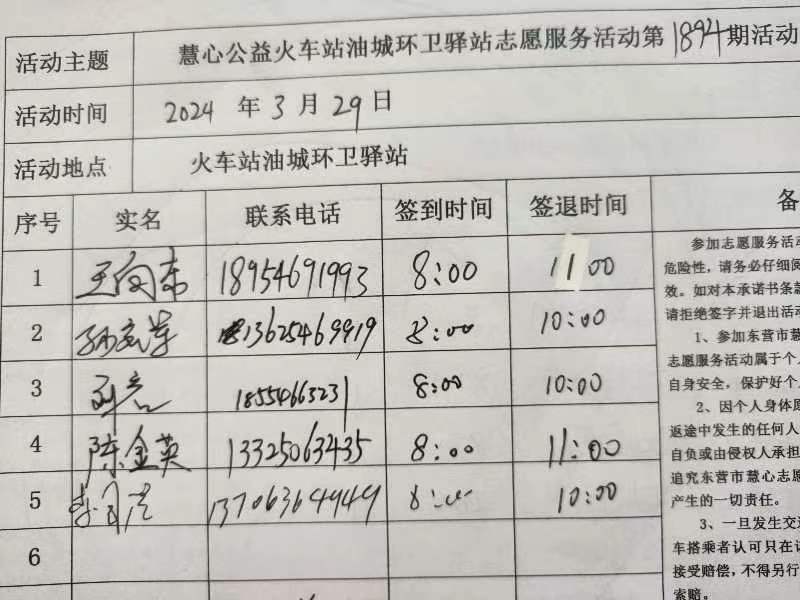 活动主题 慧心公益火车站油城环卫驿站志愿服务活动第1894期活动
活动时间 2024 年 3 月 29 日
活动地点 火车站油城环卫驿站
序号 实名 联系电话 签到时间 签退时间 备
1 王向东 18954691993 8:00 11 00
2 13625469919 8:00 10:00
3 18554663231 8:00 10:00
4 陈金英 13325063435 8:00 11:00
5 13706364949 8:00 10:00
6
参加志愿服务活动
危险性，请务必仔细阅
效。如对本承诺书条款
请拒绝签字并退出活动
1、参加东营市慧
志愿服务活动属于个人
自身安全，保护好个人
2、因个人身体原
返途中发生的任何人
自负或由侵权人承担
追究东营市慧心志愿
产生的一切责任。
3、一旦发生交通
车搭乘者认可只在
接受赔偿，不得另行
索赔。